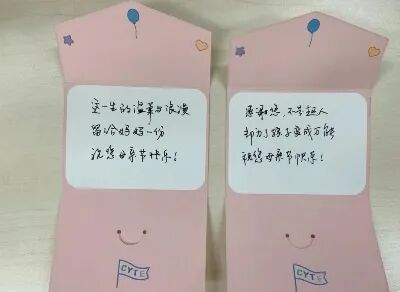 这一生的温柔与浪漫
留给妈妈一份
祝您母亲节快乐！
CYTE
感谢您，不是超人
却为了孩子变成万能
祝您母亲节快乐！
CYTE